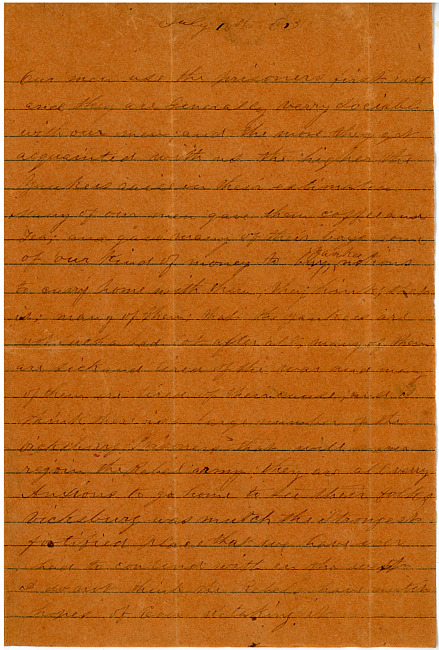 July 63
Our men use the prisoners first rate
and they are generally verry sociable
with our men and the more they get
acquainted with us the higher the
yankees raise in their estimation
many of our men gave them coffee and
Tea, and give many of their boys some
of our kind of money to buy yankee notions
to carry home with them, they think,
many of them, that the yankees are
not such a after all, many of them
are sick and tired of the war and many
of them are tired of their cause, and I
think there is a large number of the
vicksburg Prisoners that will never
regoin the Rebel army, they are all very
Anxious to go home to see their folks
Vicksburg was mutch the strongest
fortified place that we have ever
had to contend with in the
I do not think the Rebs have mutch
hopes of ever retaking it